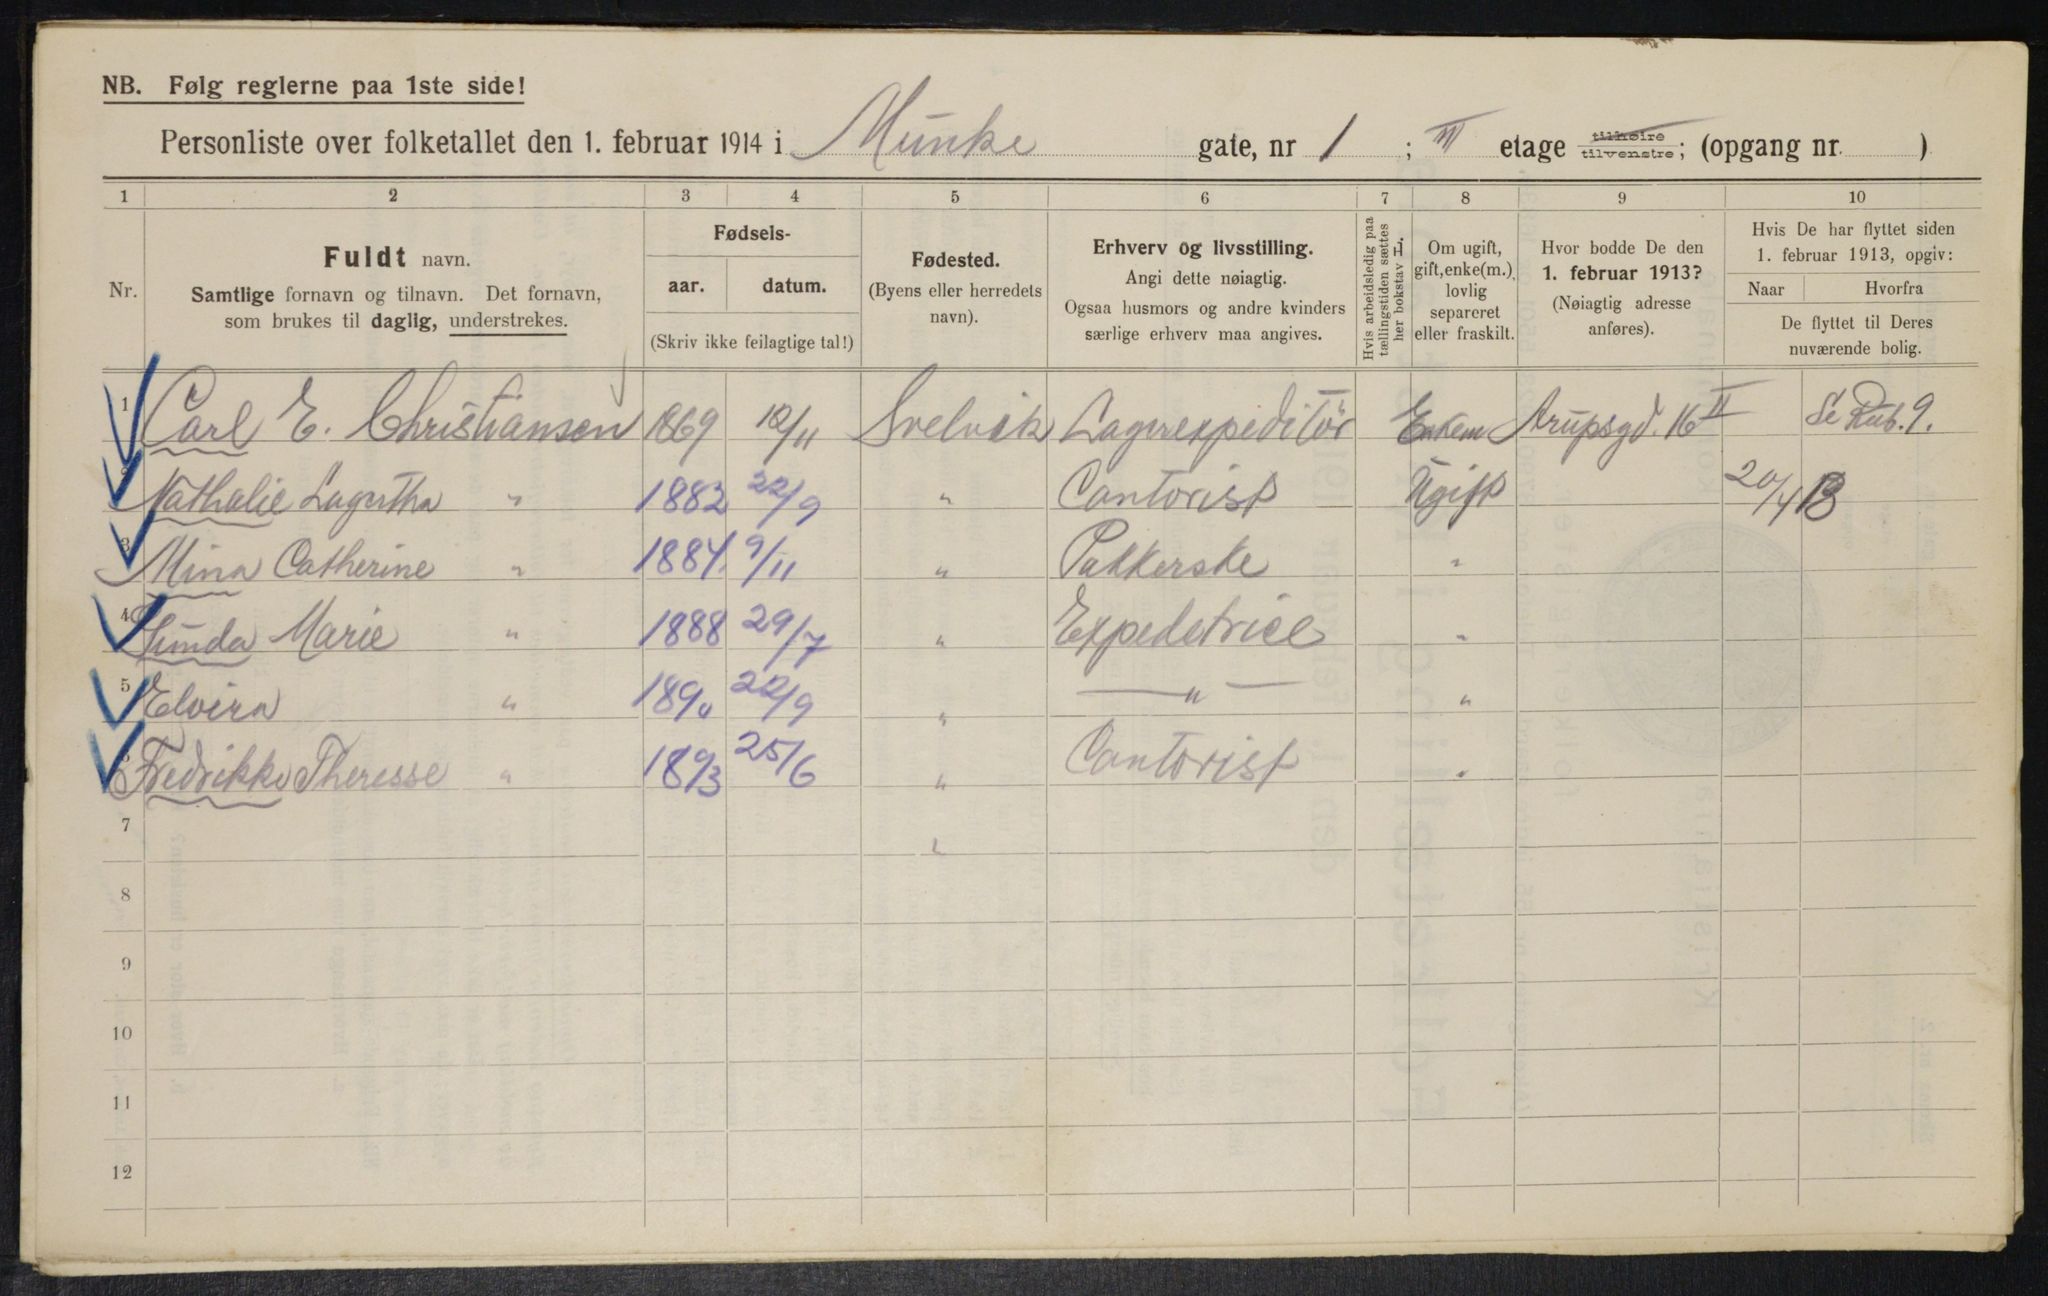 NB. Følg reglerne paa 1ste side!
Personliste over folketallet den 1. februar 1914 i Munke gate, nr 1 ; III etage tilhøire tilvenstre; (opgang nr. )
1 2 3 4 5 6 7 8 9 10
Nr.
Fuldt navn.
Samtlige fornavn og tilnavn. Det fornavn,
som brukes til daglig, understrekes.
Fødsels-
aar. datum.
(Skriv ikke feilagtige tal!)
Fødested.
(Byens eller herredets
navn).
Erhverv og livsstilling.
Angi dette nøiagtig.
Ogsaa husmors og andre kvinders
særlige erhverv maa angives.
Hvis arbeidsledig paa
tællingstiden sættes
her bokstav L.
Om ugift,
gift, enke(m.),
lovlig
separeret
eller fraskilt.
Hvor bodde De den
1. februar 1913?
(Nøiagtig adresse
anføres).
Hvis De har flyttet siden
1. februar 1913, opgiv:
Naar Hvorfra
De flyttet til Deres
nuværende bolig.
1 Carl E. Christiansen 1869 12/11 Svelvik Lagerexpeditør Enkem Arupsgd. 16 II Se Rub. 9.
2 Nathalie Lagertha " 1882 22/9 " Cantorist Ugift 20/4 13
3 Mina Catherine " 1884 9/11 " Pakkerske "
4 Marie " 1888 29/7 " Expeditrice "
5 Elvira " 1890 22/9 " — " — "
6 Fredrikke Theresse " 1893 25/6 " Cantorist "
7
8
9
10
11
12